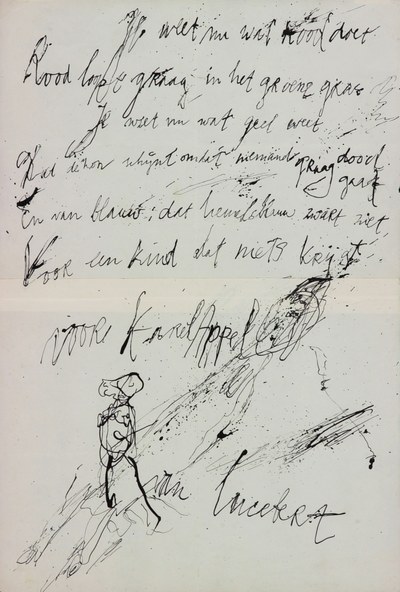 Je weet nu wat rood doet
Rood loopt graag in het groene gras
Je weet nu wat geel weet
Dat de zon schijnt omdat niemand graag dood gaat
En van blauw: dat zwart ziet
Voor een kind dat niets krijgt.
voor Karel Appel
van Lucebert